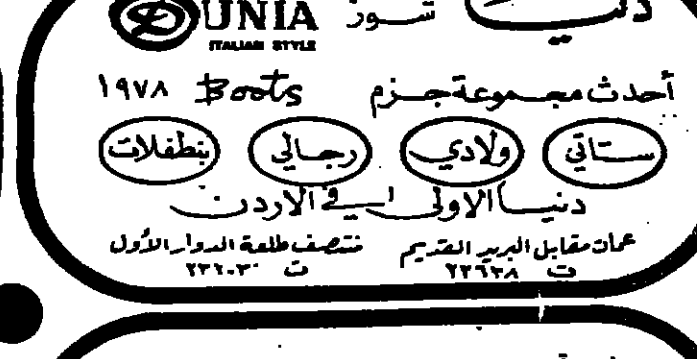 دنيا شوز DUNIA
ITALIAN STYLE
أحدث مجموعة جزم Boots ١٩٧٨
ستاتي ولادي رجالي بنطفلات
دنيا الاولى في الاردن
عمان مقابل البريد القديم منتصف طلعة الدوار الأول
ت ٢٢٦٣٨ ت